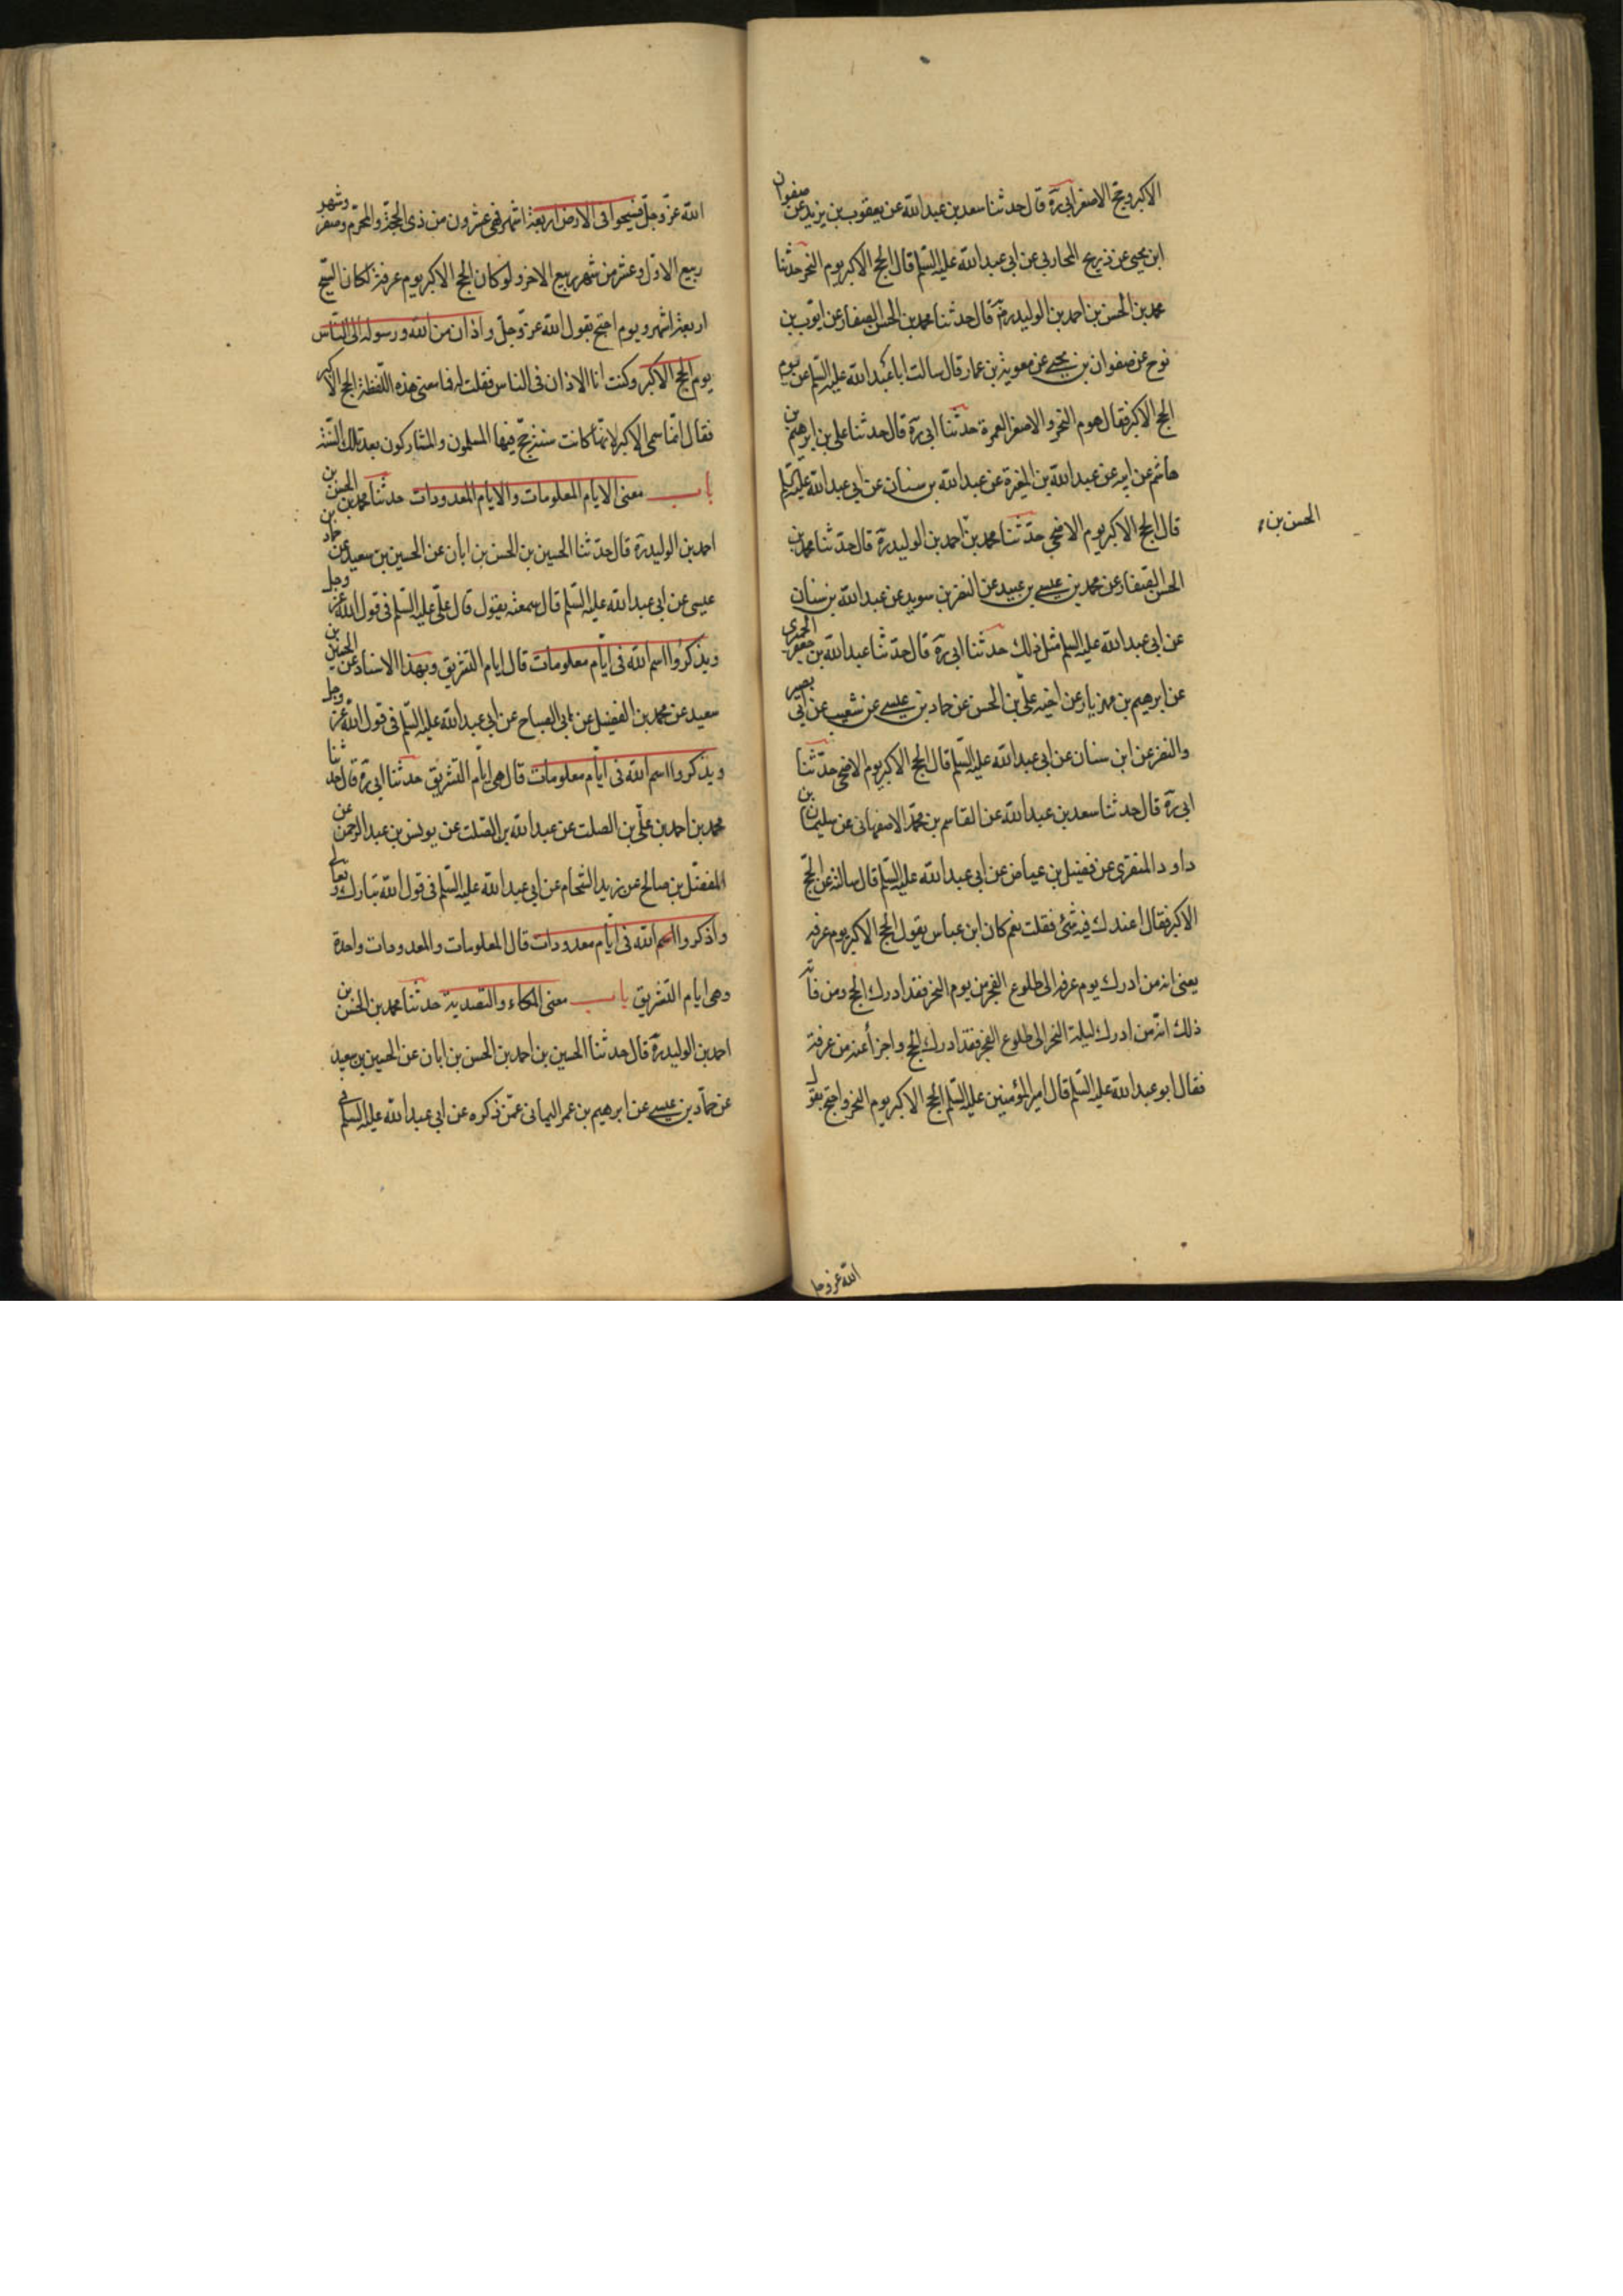 الاكبر وحج الاصغر ابى ره قال حدثنا سعد بن عبدالله عن يعقوب بن يزيد عن صفوان
ابن يحيى عن ذريح المحاربى عن ابى عبدالله عليه السلم قال الحج الاكبر يوم النحر حدثنا
محمد بن الحسن بن احمد بن الوليد ره قال حدثنا محمد بن الحسن الصفار عن ايوب بن
نوح عن صفوان بن يحيى عن معوية بن عمار قال سالت ابا عبدالله عليه السلم عن يوم
الحج الاكبر فقال هو يوم النحر والاصغر العمرة حدثنا ابى ره قال حدثنا على بن ابرهيم بن
هاشم عن ابيه عن عبدالله بن المغيرة عن عبدالله بن سنان عن ابى عبدالله عليه السلم
قال الحج الاكبر يوم الاضحى حدثنا محمد بن احمد بن الوليد ره قال حدثنا محمد بن
الحسن بن
الحسن الصفار عن محمد بن عيسى بن عبيد عن النضر بن سويد عن عبدالله بن سنان
عن ابى عبدالله عليه السلم مثل ذلك حدثنا ابى ره قال حدثنا عبدالله بن جعفر الحميرى
عن ابرهيم بن مهزيار عن اخيه على بن الحسن عن حماد بن عيسى عن شعيب عن ابى بصير
والنضر عن ابن سنان عن ابى عبدالله عليه السلم قال الحج الاكبر يوم الاضحى حدثنا
ابى ره قال حدثنا سعد بن عبدالله عن القاسم بن محمد الاصفهانى عن سليمان بن
داود المنقرى عن فضيل بن عياض عن ابى عبدالله عليه السلم قال سالته عن الحج
الاكبر فقال اعندك فيه شئ فقلت نعم كان ابن عباس يقول الحج الاكبر يوم عرفه
يعنى انه من ادرك يوم عرفه الى طلوع الفجر من يوم النحر فقد ادرك الحج ومن فاته
ذلك انه من ادرك ليلة النحر الى طلوع الفجر فقد ادرك الحج واجزأ عنه من عرفة
فقال ابو عبدالله عليه السلم قال امير المؤمنين عليه السلم الحج الاكبر يوم النحر واحتج بقول
الله عز وجل
الله عز وجل فسيحوا فى الارض اربعة اشهر فهى عشرون من ذى الحجة والمحرم وصفر وشهر
ربيع الاول وعشر من شهر ربيع الاخر ولو كان الحج الاكبر يوم عرفة لكان السيح
اربعة اشهر ويوم احتج بقول الله عز وجل واذان من الله ورسوله الى الناس
يوم الحج الاكبر وكنت انا الاذان فى الناس فقلت له فما معنى هذه اللفظة الحج الاكبر
فقال انما سمى الاكبر لانها كانت سنة حج فيها المسلمون والمشاركون بعد تلك السنة
باب معنى الايام المعلومات والايام المعدودات حدثنا محمد بن الحسن بن
احمد بن الوليد ره قال حدثنا الحسين بن الحسن بن ابان عن الحسين بن سعيد عن حماد بن
عيسى عن ابى عبدالله عليه السلم قال سمعته يقول قال على عليه السلم فى قول الله عز وجل
ويذكروا اسم الله فى ايام معلومات قال ايام التشريق وبهذا الاسناد عن الحسين بن
سعيد عن محمد بن الفضيل عن ابى الصباح عن ابى عبدالله عليه السلم فى قول الله عز وجل
ويذكروا اسم الله فى ايام معلومات قال هى ايام التشريق حدثنا ابى ره قال حدثنا
محمد بن احمد بن على بن الصلت عن عبدالله بن الصلت عن يونس بن عبد الرحمن عن
المفضل بن صالح عن زيد الشحام عن ابى عبدالله عليه السلم فى قول الله تبارك وتعالى
واذكروا اسم الله فى ايام معدودات قال المعلومات والمعدودات واحدة
وهى ايام التشريق باب معنى المكاء والتصدية حدثنا محمد بن الحسن بن
احمد بن الوليد ره قال حدثنا الحسين بن احمد بن الحسن بن ابان عن الحسين بن سعيد
عن حماد بن عيسى عن ابرهيم بن عمر اليمانى عمن ذكره عن ابى عبدالله عليه السلم فى